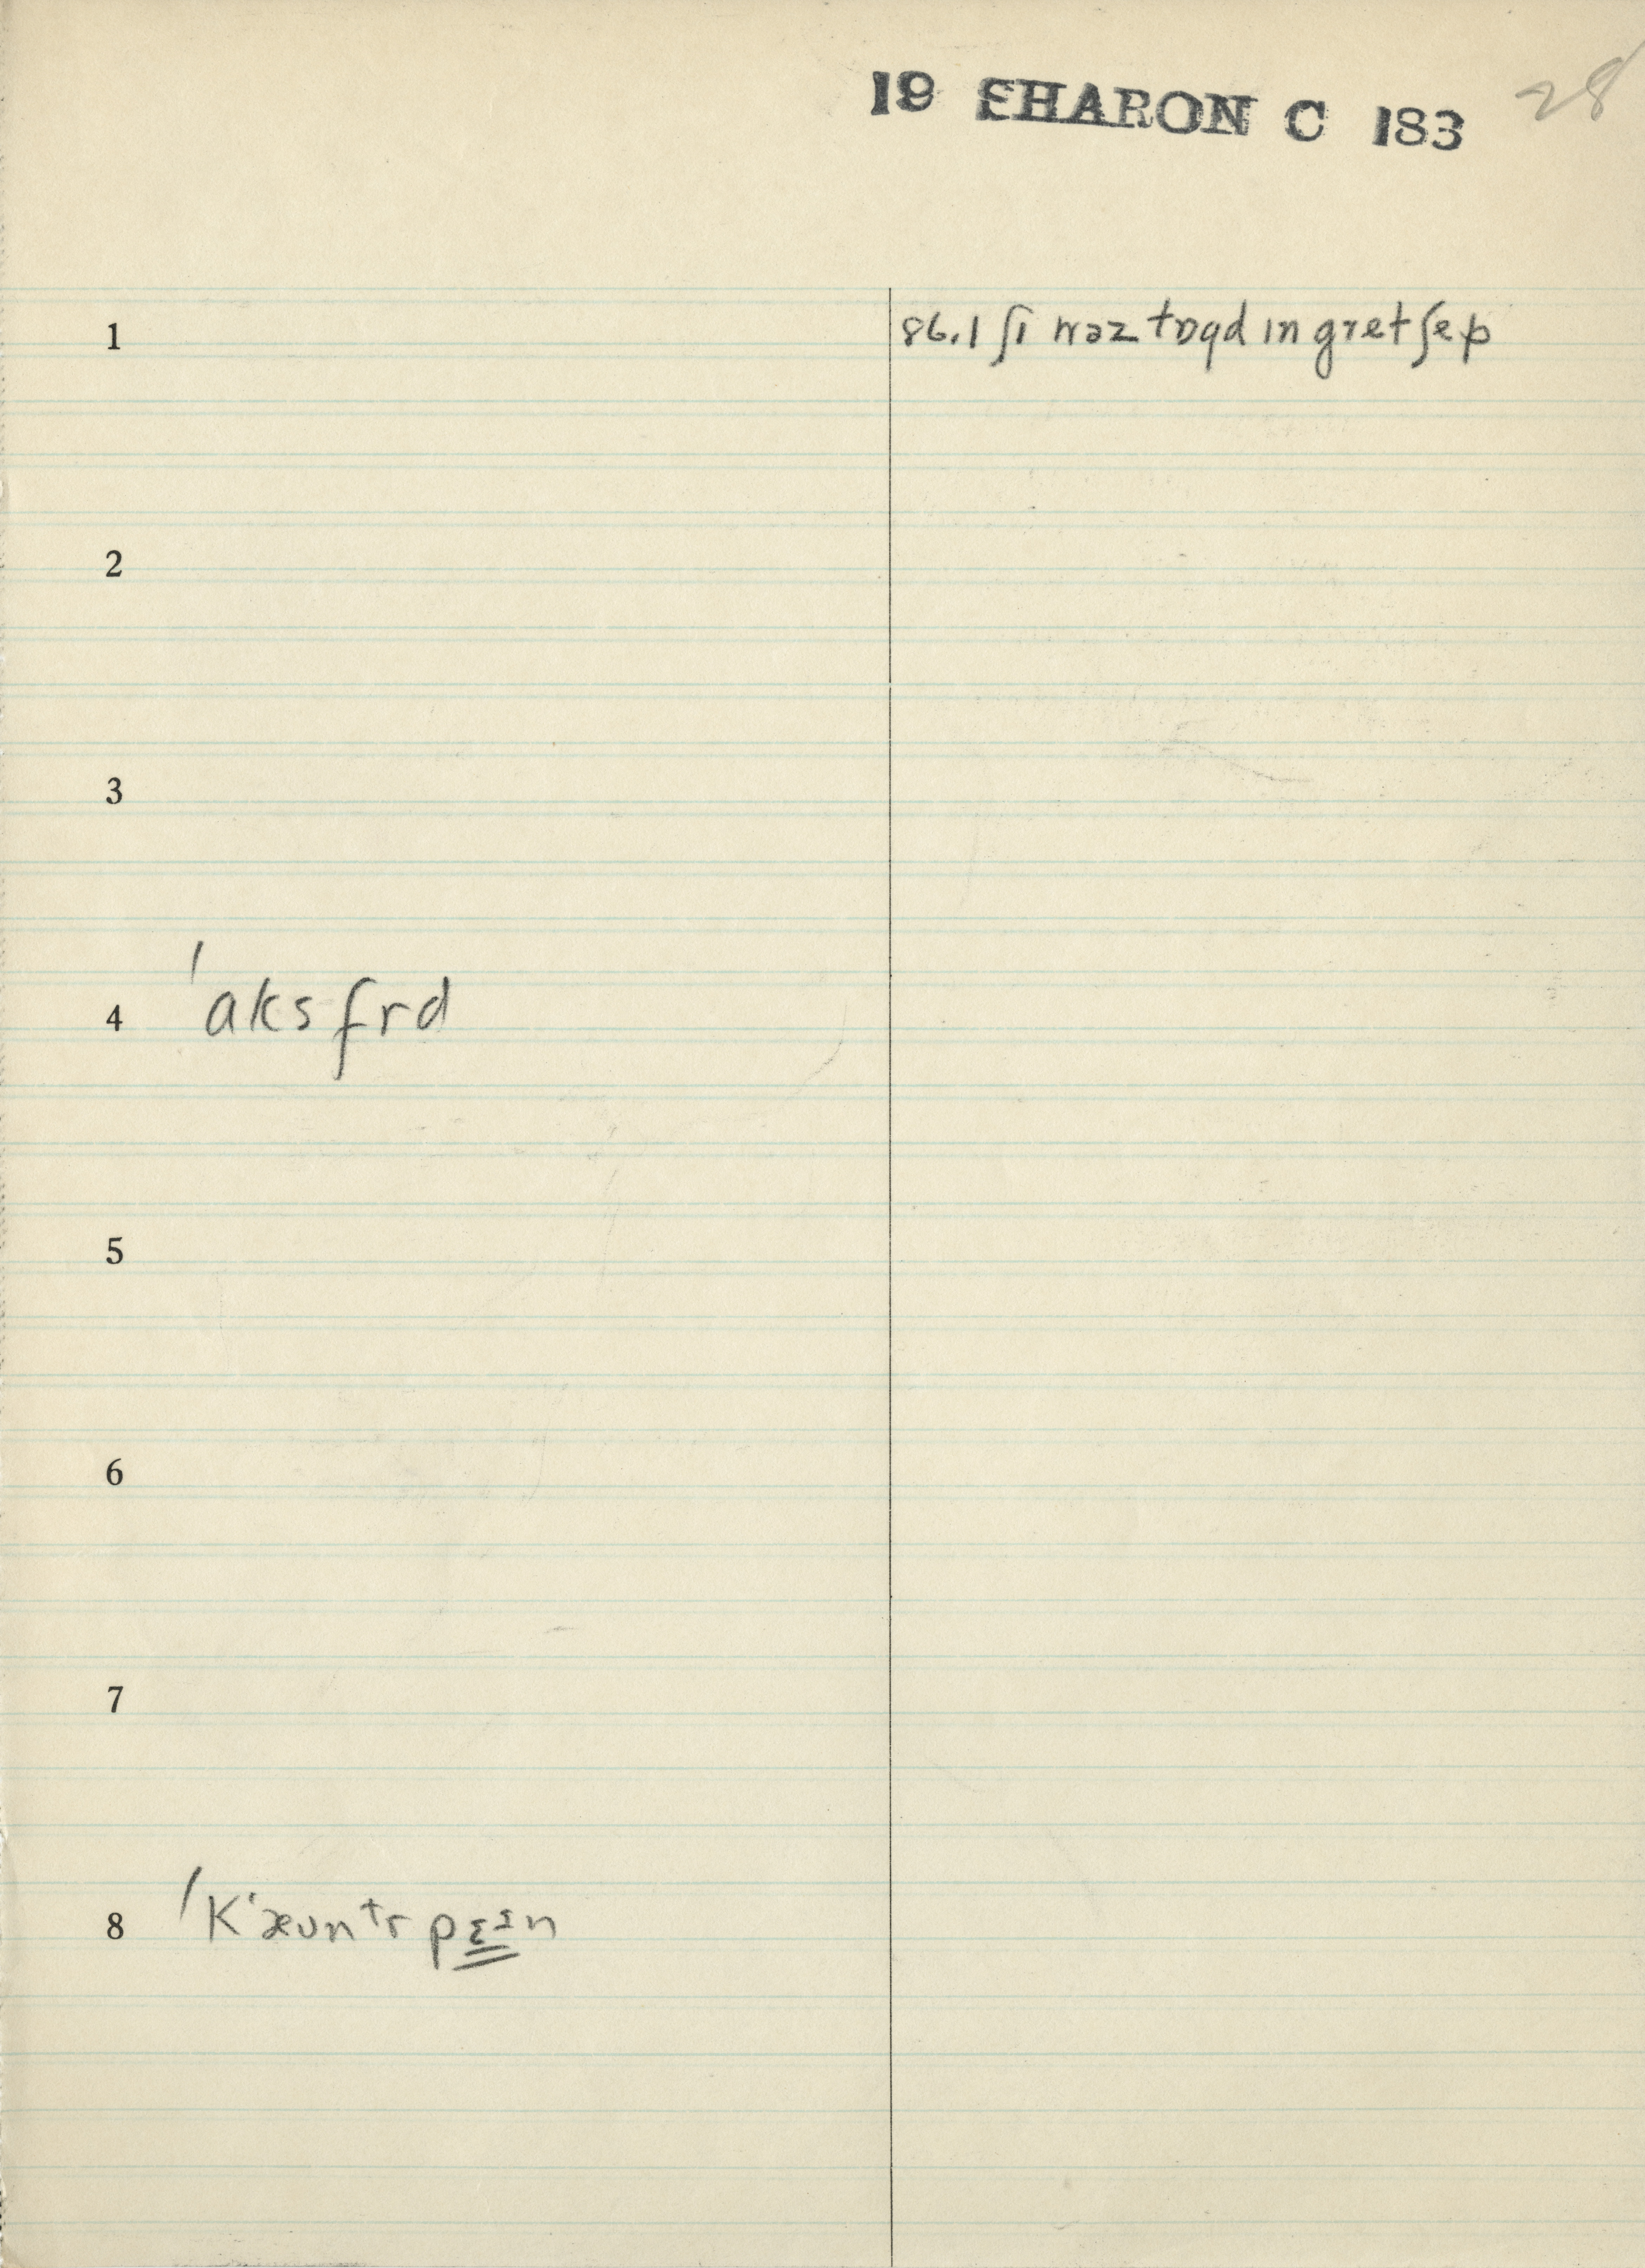 19 SHARON C 183 28
1 86.1 ʃɪ wəz tɒɡd ɪn gret ʃep
2
3
4 ˈaksfrd
5
6
7
8 ˈKʻæʊntr pɛᶻn